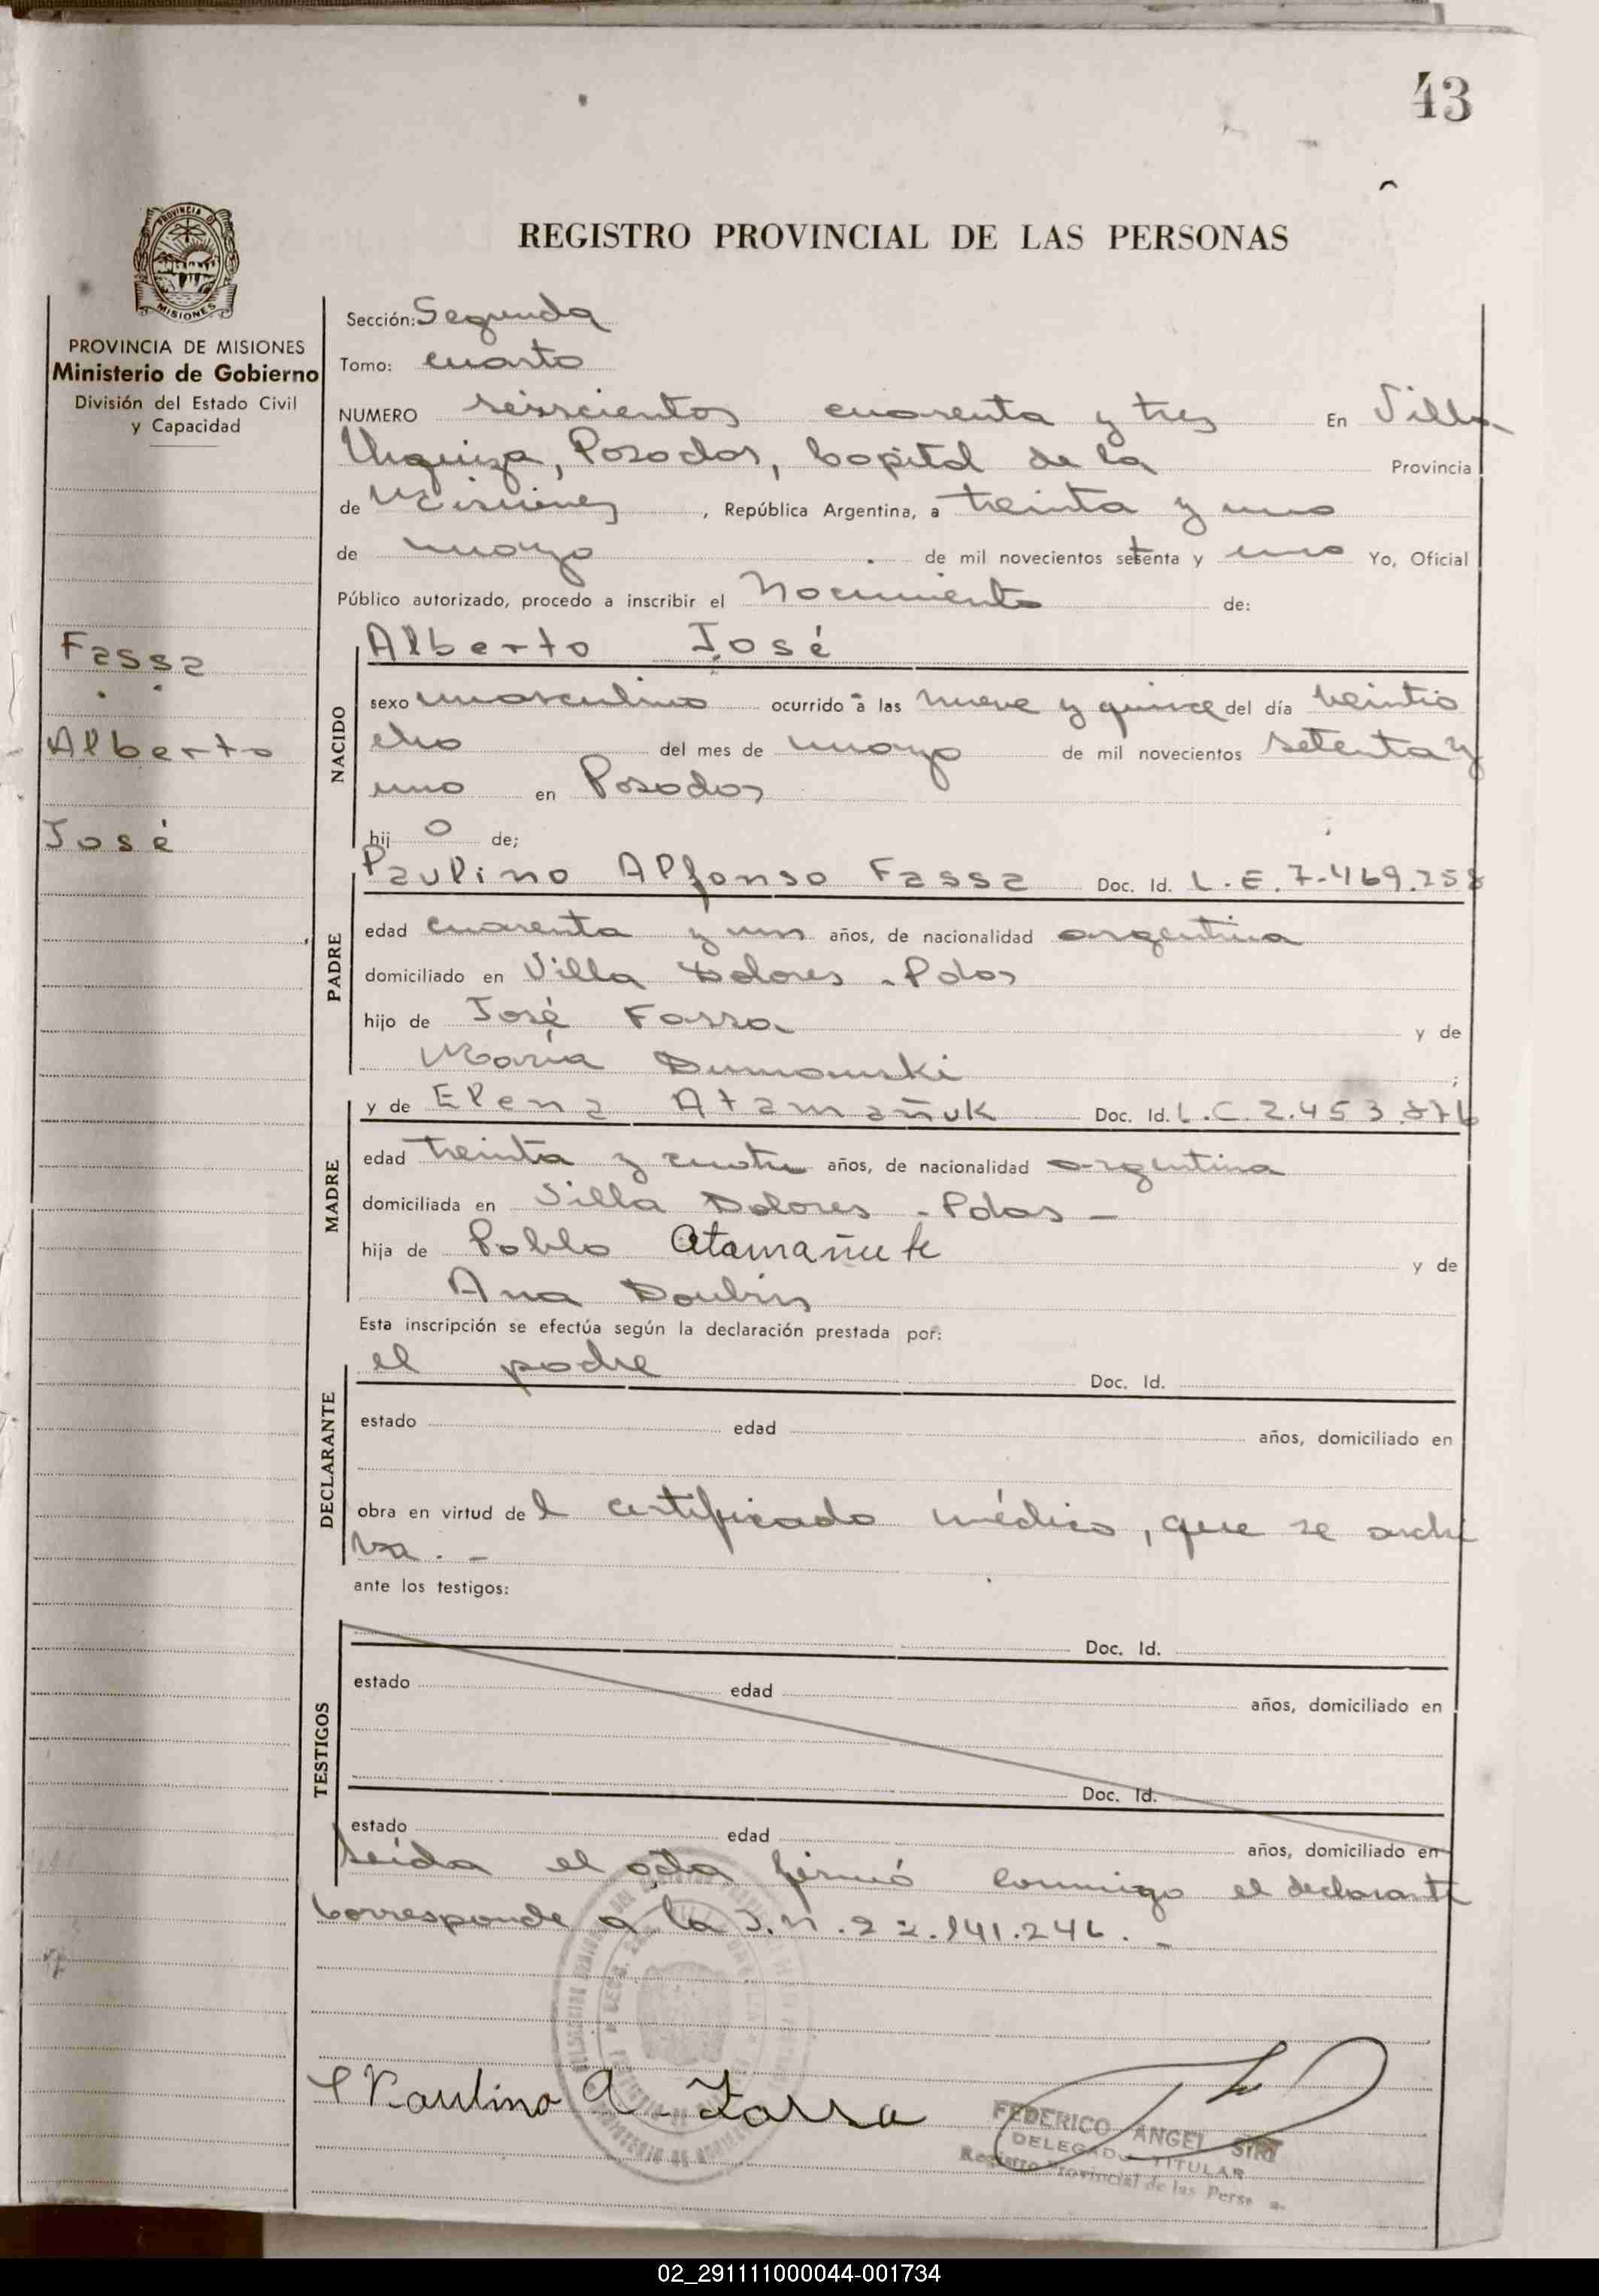 43
PROVINCIA DE
MISIONES
PROVINCIA DE MISIONES
Ministerio de Gobierno
División del Estado Civil
y Capacidad
Fassa
Alberto
José
REGISTRO PROVINCIAL DE LAS PERSONAS
Sección: Segunda
Tomo: cuarto
NUMERO seiscientos cuarenta y tres En Villa
Urquiza, Posadas, Capital de la Provincia
de Misiones, República Argentina, a treinta y uno
de mayo de mil novecientos setenta y uno Yo, Oficial
Público autorizado, procedo a inscribir el Nacimiento de:
Alberto José
NACIDO
sexo masculino ocurrido a las nueve y quince del día veintio
cho del mes de mayo de mil novecientos setenta y
uno en Posadas
hijo de;
Paulino Alfonso Fassa Doc. Id. L.E. 7.469.258
PADRE
edad cuarenta y un años, de nacionalidad argentina
domiciliado en Villa Dolores - Pdas
hijo de José Fassa y de
María Dumanski;
y de Elena Atamañuk Doc. Id. L.C 2.453.876
MADRE
edad treinta y cuatro años, de nacionalidad argentina
domiciliada en Villa Dolores - Pdas -
hija de Pablo Atamañuk y de
Ana
Esta inscripción se efectúa según la declaración prestada por:
el padre Doc. Id.
DECLARANTE
estado edad años, domiciliado en
obra en virtud del certificado médico, que se archi
va. -
ante los testigos:
Doc. Id.
TESTIGOS
estado edad años, domiciliado en
Doc. Id.
estado edad años, domiciliado en
Leída el acta firmó conmigo el declarante
Corresponde a la I.N. 22.141.246. -
Paulino A. Fassa
FEDERICO ANGEL
DELEGADO TITULAR
Registro Provincial de las Perso
02_291111000044-001734